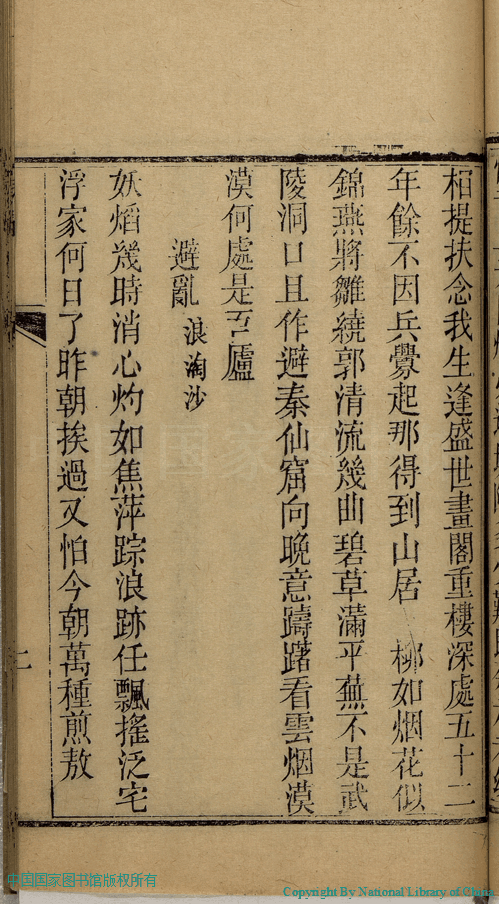 相提扶念我生逢盛世畫閣重樓深處五十二
年餘不因兵釁起那得到山居　柳如烟花似
錦燕將雛繞郭清流幾曲碧草滿平蕪不是武
陵洞口且作避秦仙窟向晚意躊躇看雲烟漠
漠何處是吾廬
避亂 浪淘沙
妖熖幾時消心灼如焦萍踪浪跡任飄搖泛宅
浮家何日了昨朝挨過又怕今朝萬種煎敖
中国国家图书馆版权所有
Copyright By National Library of China